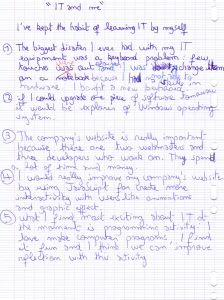 "IT and me"
I've kept the habit of learning IT by myself
① The biggest disaster I ever had with my IT
equipment was a keyboard problem: few
launches was out. I was change them
on a notebook because I had not to
hardware I bought a new behaviour
② If I could upgrade one piece of software tomorrow
it would be explorer of Windows operating
system.
③ The company's website is really important
because there are two webmasters and
three developers who work on. They spend
a lot of time and money.
④ I would really improve my company's website
by using JavaScript for create more
interactivity with users like animations
and graphic effect
⑤ What I find most exciting about IT at
the moment is programming activity. I
love make computer programs. I find
it fun and I think we can improve
reflection with this activity